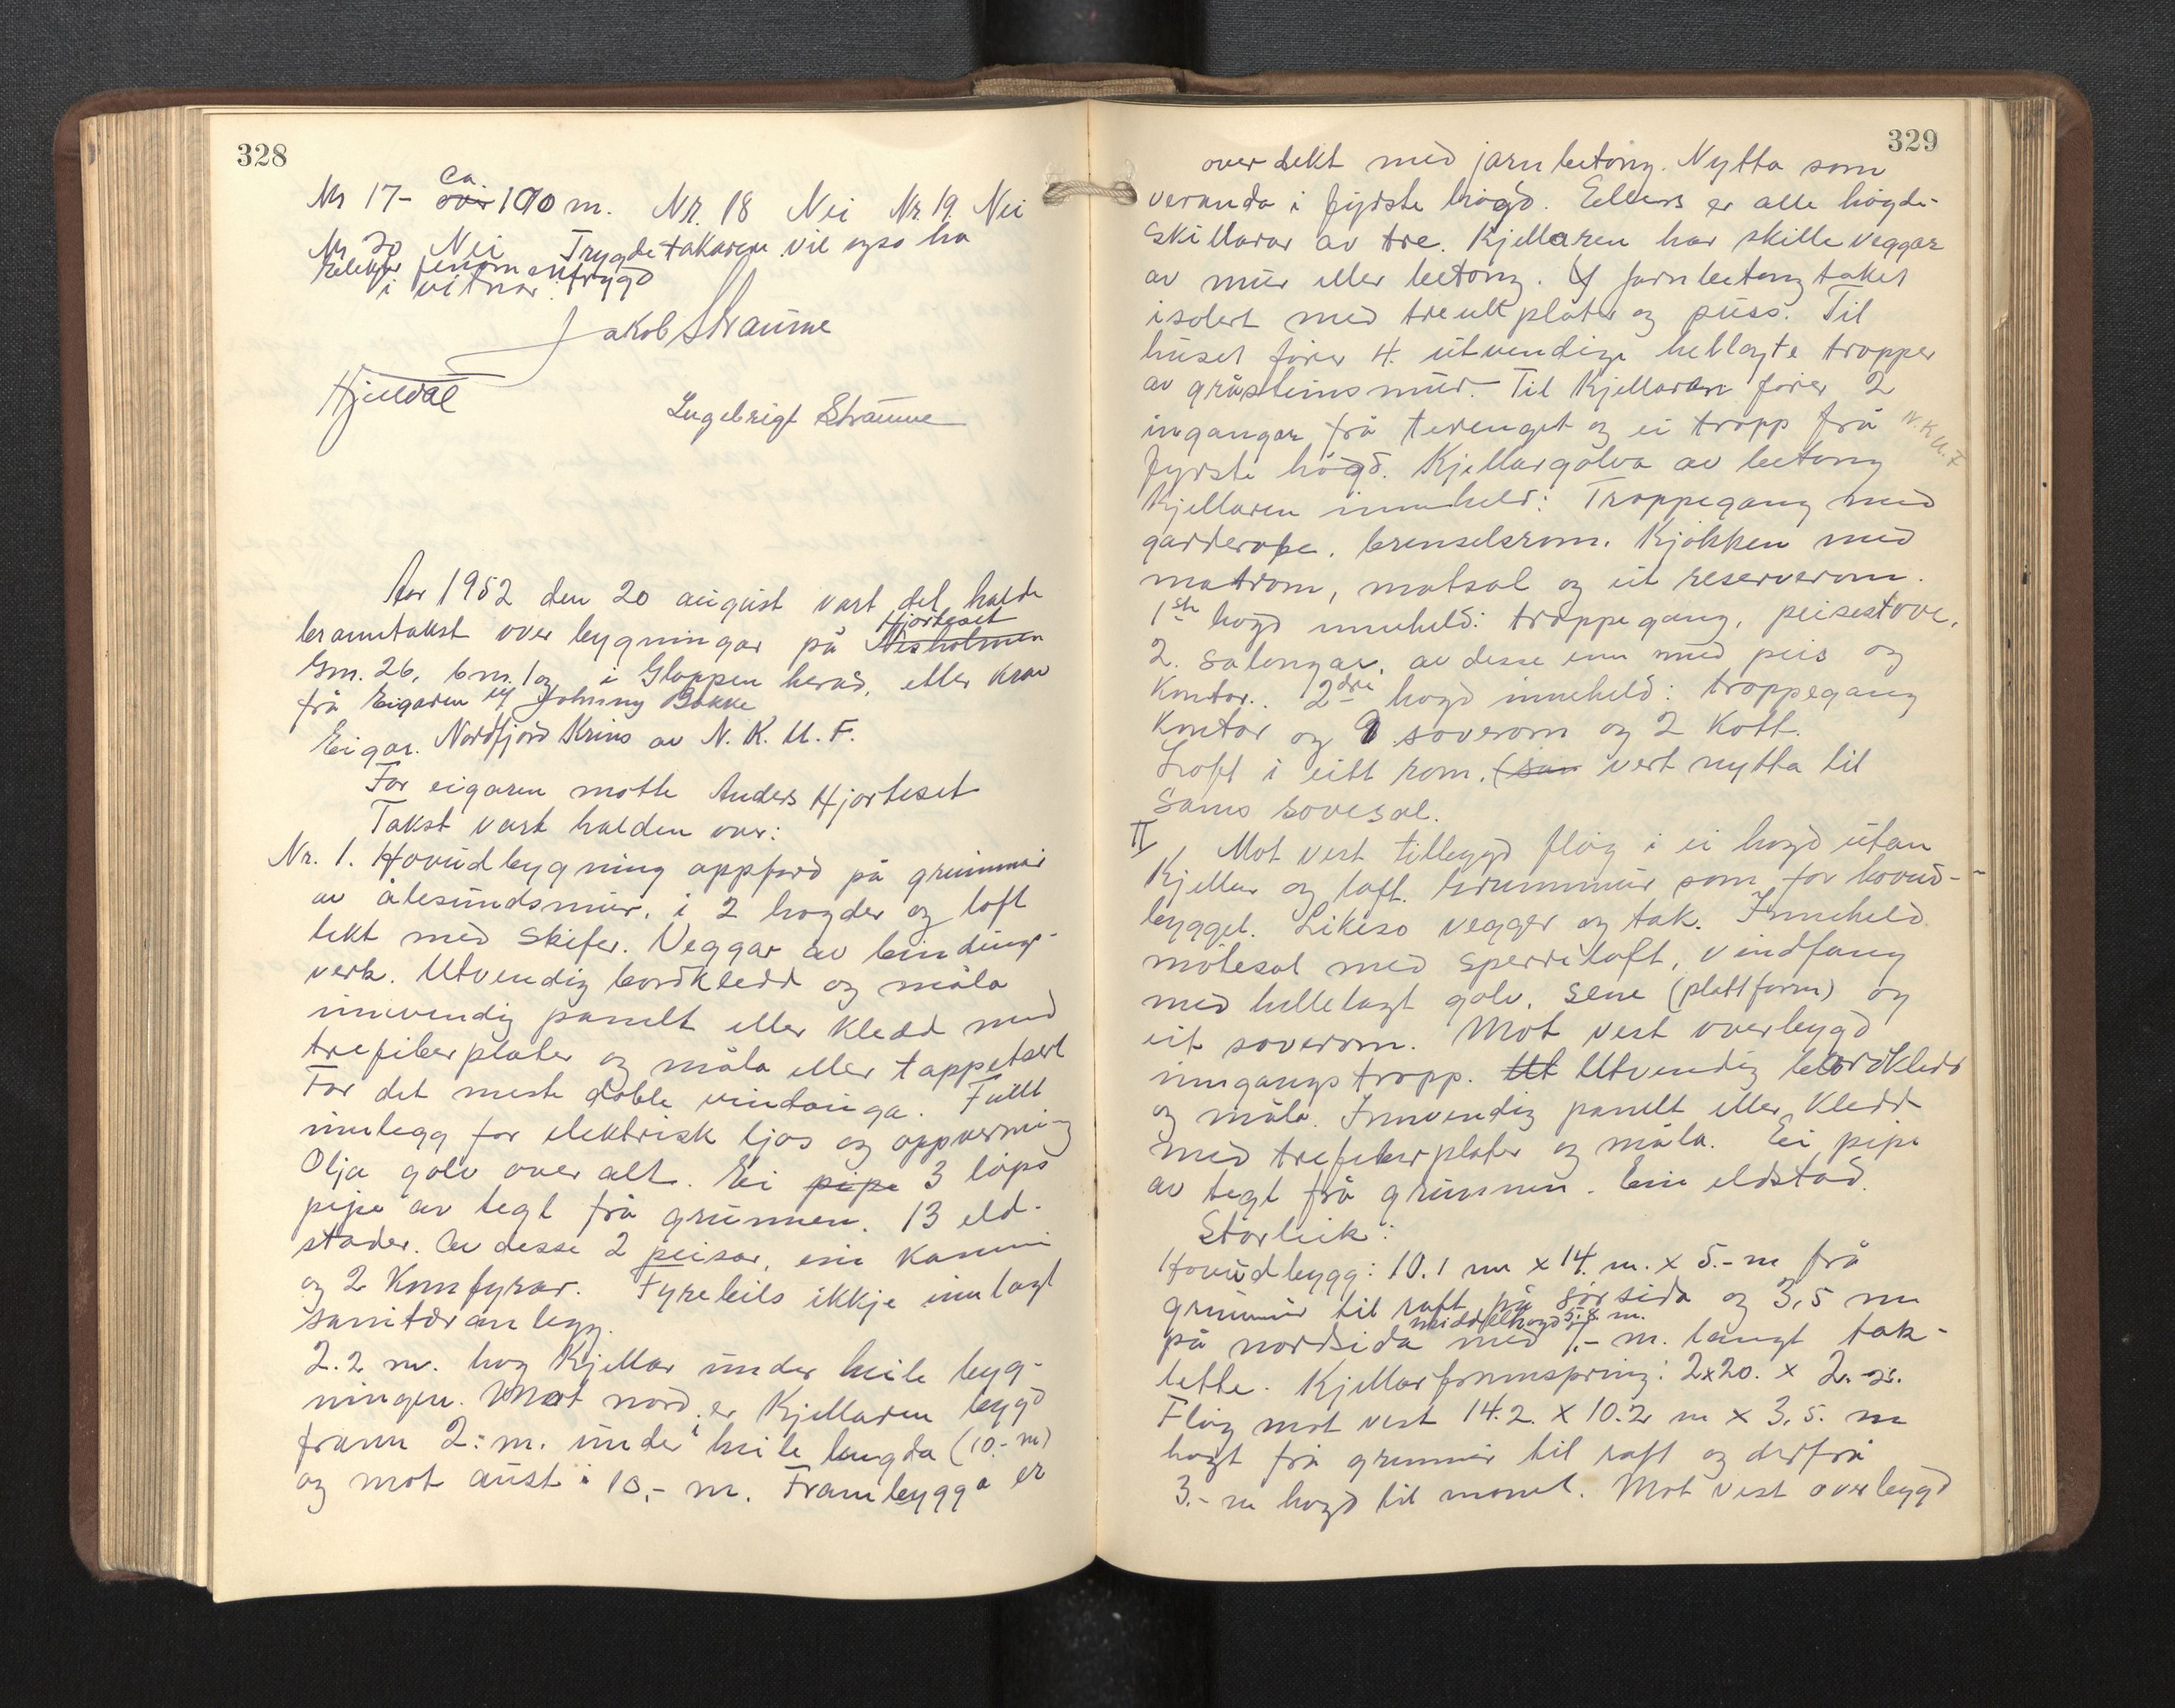 328
Nr 17- ca. over 100 m. Nr. 18 Nei Nr. 19. Nei
Nr 20 Nei Trygdetakaren vil ogso ha
elektr fenomentrygd
i vitnar:
Jakob Straume
Hjeldal
Ingebrigt Straume
Aar 1952 den 20 august vart det halde
branntakst over bygningar på Hjorteset Nesholmen
Gm. 26, bm. 1 og i Gloppen herad, etter krav
frå Eigaren v/ Johnny Bakke
Eigar. Nordfjord Krins av N. K. U. F.
For eigaren møtte Anders Hjorteset
Takst vart halden over:
Nr. 1. Hovudbygning oppførd på grunnmur
av ålesundsmur, i 2 høgder og loft
tekt med skifer. Veggar av bindings-
verk. Utvendig bordkledd og måla
innvendig panelt eller kledd med
trefiberplater og måla eller tappetsert
For det meste doble vindauga. Fullt
innlegg for elektrisk ljos og oppvarming
Olja golv over alt. Ei pipe 3 løps
pipe av tegl frå grunnen. 13 eld-
stader. Av desse 2 peisar, ein kamin
og 2 Komfyrar. Fyrebils ikkje innlagt
sanitæranlegg.
2.2 m. høg Kjellar under heile byg-
ningen. Mot nord er Kjellaren bygd
fram 2:m. under i heile lengda (10.- m)
og mot aust i 10,- m. Frambygga er
329
overdekt med jarnbetong. Nytta som
veranda i fyrste høgd. Ellers er alle høgde-
skillarar av tre. Kjellaren har skilleveggar
av mur eller betong. Jarnbetongtaket
isolert med treullplater og puss. Til
huset fører 4. utvendige hellagte tropper
av gråsteinsmur. Til Kjellaren fører 2
inngangar frå terrenget og ei tropp frå
N.K.U.F
fyrste høgd. Kjellargolva av betong
Kjellaren inneheld: Troppegang med
garderobe, brenselsrom. Kjøkken med
matrom, matsal og eit reserverom.
1ste høgd inneheld: troppegang, peisestove,
2. salongar, av desse ein med peis og
Kontor. 2dre høgd inneheld: troppegang
Kontor og 9 soverom og 2 Kott.
Loft i eitt rom, (som vert nytta til
sams sovesal.
II Mot vest tilbygd fløy i ei høgd utan
Kjellar og loft. Grunnmur som for hovud-
bygget. Likeso vegger og tak. Inneheld
møtesal med sperreloft, vindfang
med hellelagt golv, sene (plattform) og
eit soverom. Mot vest overbygd
inngangstropp. Ut Utvendig bordkledd
og måla. Innvendig panelt eller kledd
med trefiberplater og måla. Ei pipe
av tegl frå grunnen. Ein eldstad.
Storleik:
Hovudbygg: 10.1 m x 14. m. x 5.- m frå
grunnmur til raft på sørsida og 3,5 m
middelhøgd 5.8. m.
på nordsida med 7.- m. langt tak-
lette. Kjellarframspring: 2x20. x 2.-
Fløy mot vest 14.2. x 10.2 m x 3,5. m
høgt frå grunnmur til raft og derfrå
3.- m høgd til mønet. Mot vest overbygd